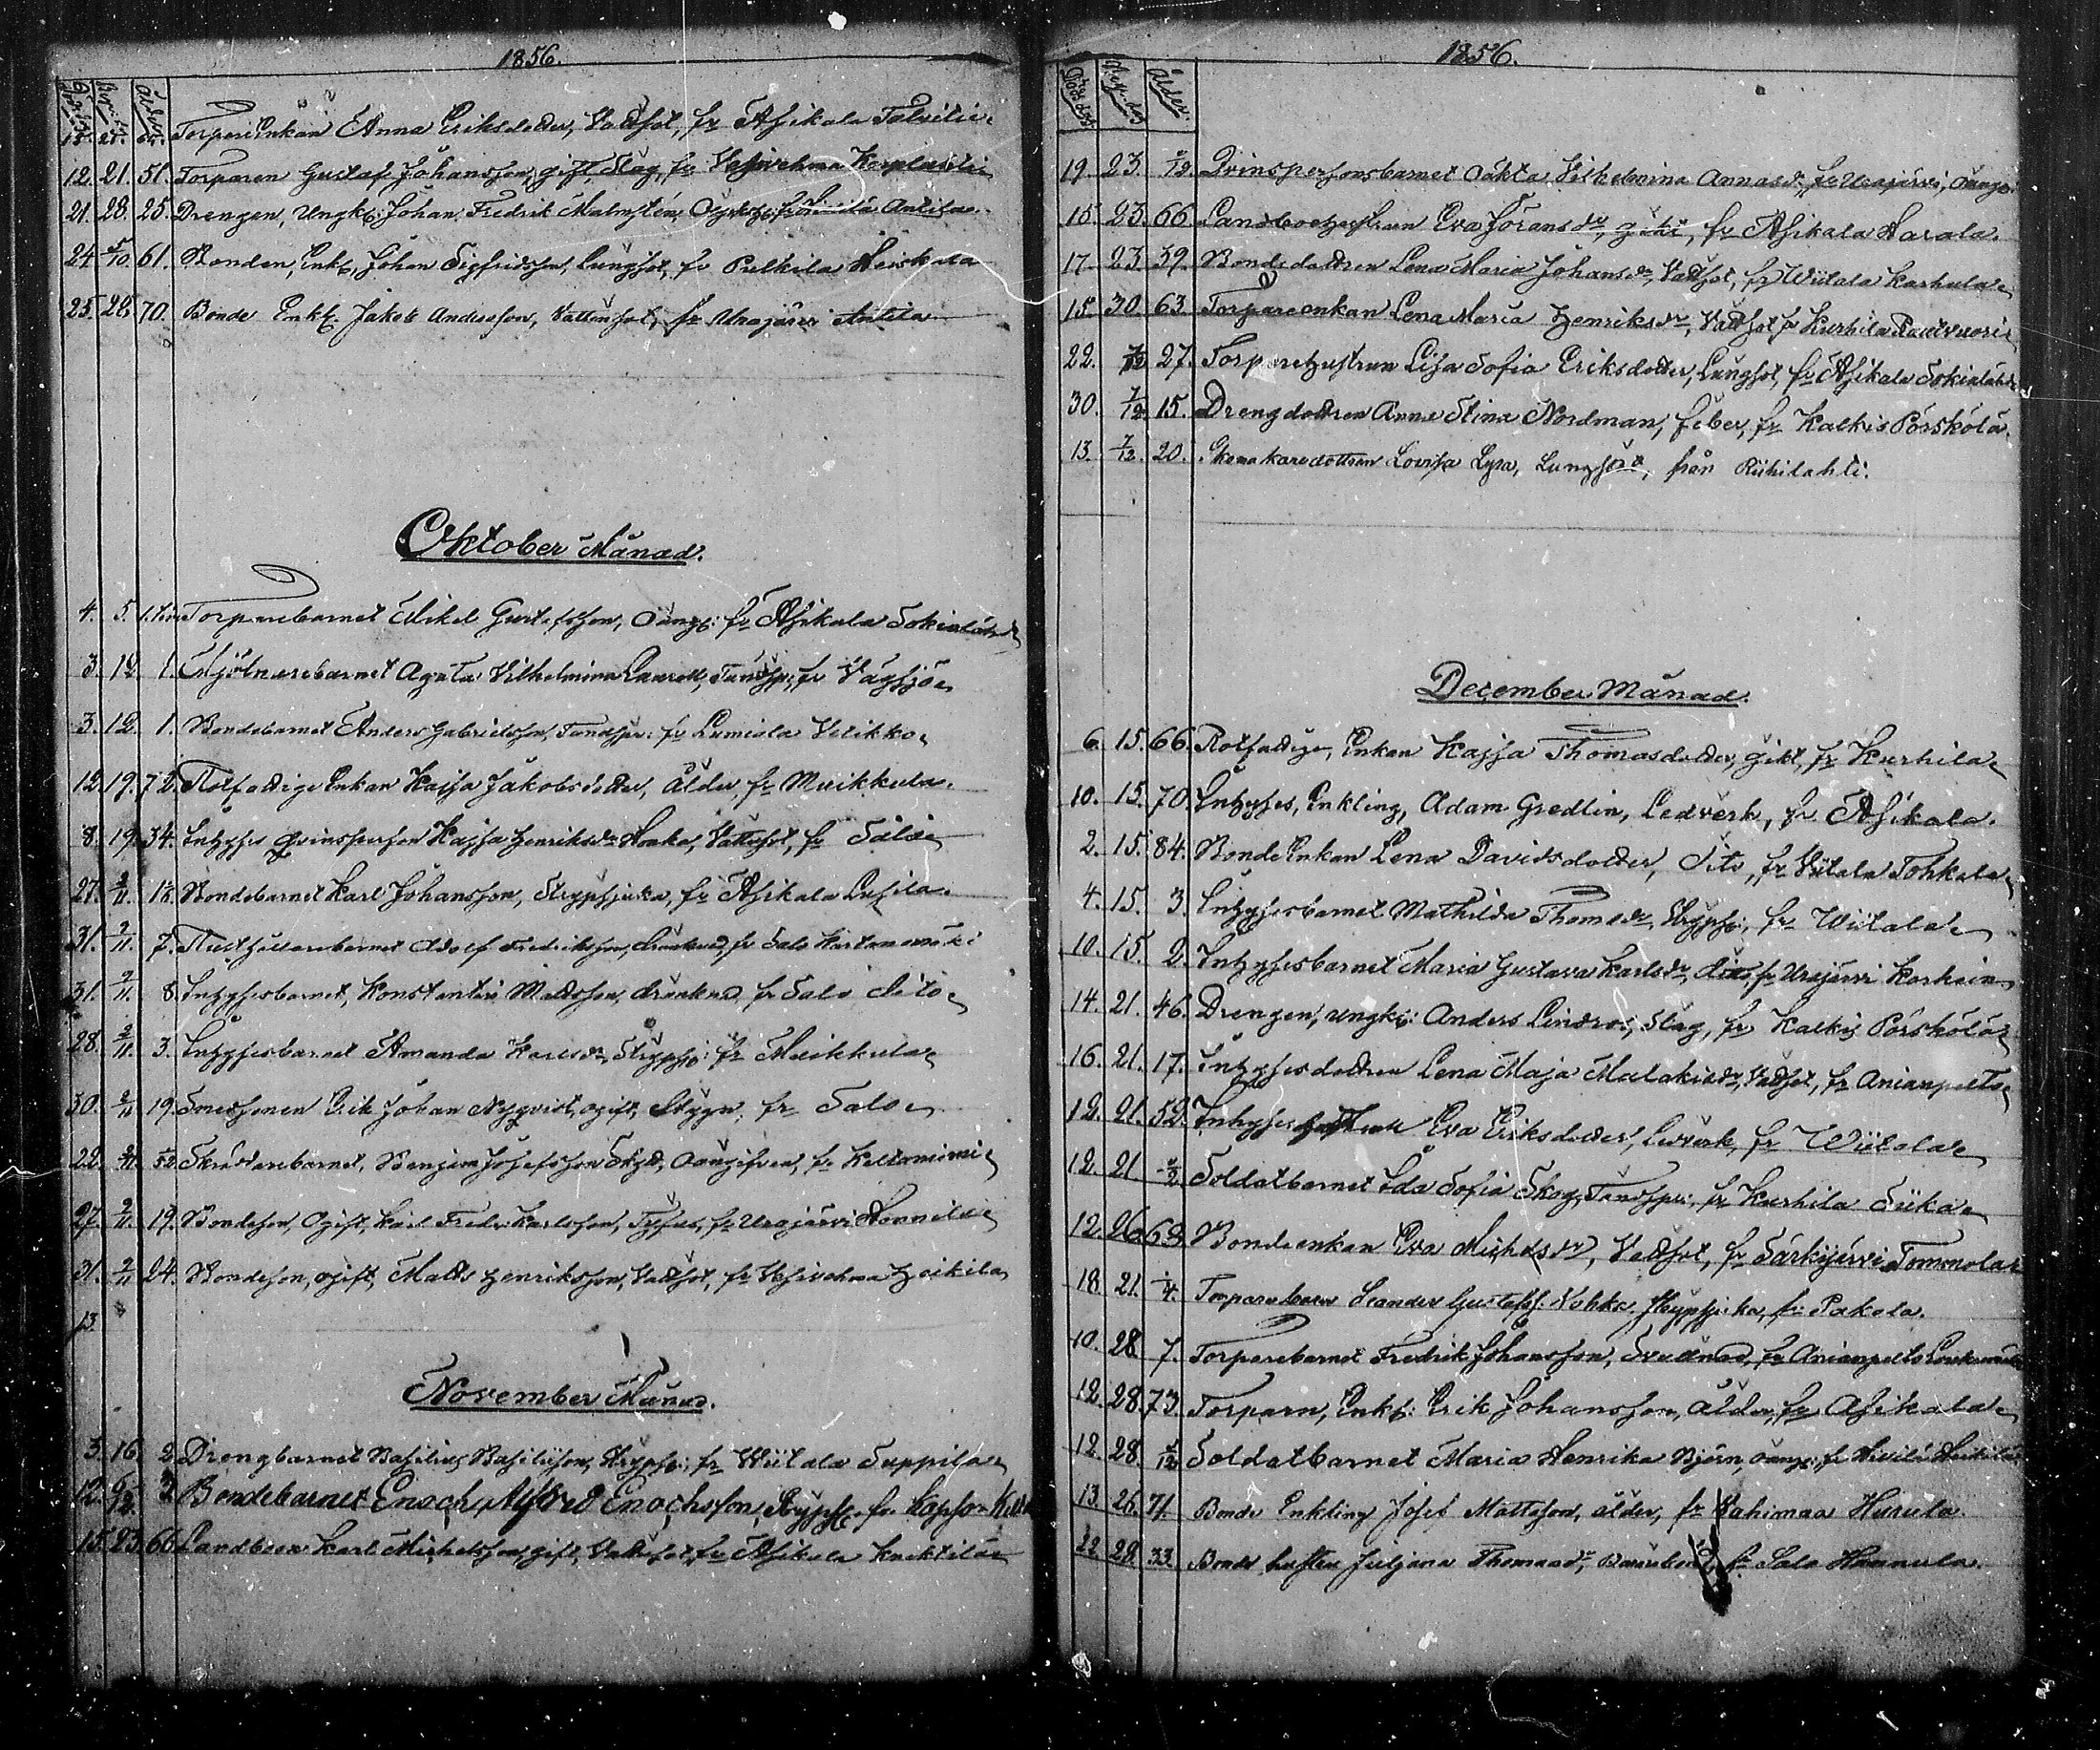 1856.
Ålder
15. 21. Torpare Enkan Anna Eriksdotter, Vattsot, fr Asikala Talvitie
12. 21. 51. Torparen Gustaf Johansson, gift, Slag, fr Vesivehma
21. 28. 25. Drengen, Ungk: Johan Fredrik Malmstén, Anttila
24 5/10 61. Bonden, Enkl, Johan Sigfridsson, Lungsot, fr Pulkila Heiskala
25. 28. 70. Bonde Enkl. Jakob Andersson, Vattensot, fr Urajärvi Anttila
Oktober Månad.
4. 5. Torparebarnet Mikel Gustafsson, Oangf: fr Asikala
3. 12. 1. Mjölnarebarnet Agata Vilhelmina Laurell, Tandspr, fr Vägsjö
3. 12. 1. Bondebarnet Anders Gabrielsson, Tandspr: fr Lumiala Veikko
12. 19. 72. Rotfattige Enkan Kajsa Jakobsdotter, ålder, fr Muikkula.
8. 19. 34. Inhyses Qvinsperson Kajsa Henriksdr Vattsot, fr Salo
27. 2/11. Bondebarnet Karl Johansson, Strypsjuka, fr Asikala
31. 2/11. 7. Rusthållarebarnet Adolf Fredriksson, drunknad, fr Salo
31. 2/11. 8. Inhysesbarnet, Konstantin Mattsson, drunknad, fr Salo dito
28. 2/11. 3. Inhysesbarnet Amanda Karlsdr, Strypsj: fr Muikkula
30. 2/11 19. Smedsonen Erik Johan Nyqvist, ogift, Stygn, fr Salo
22. 2/11. Skräddarebarnet, Benjam Josefsson Oangifven, fr Keltaniemi
27. 2/11. 19. Bondeson, Ogift, Karl Fredr: Karlsson, Tyfus, fr Urajärvi Hannila
31. 2/11 24. Bondeson, ogift, Matts Henriksson, Vattsot, fr Vesivehma Heikila
13.
November Månad.
3. 16. 2. Drengbarnet Basilius Basiliisson, Strypsj: fr Wiitala Seppila
12. Bondebarnet Enoch Alfred Enochsson, Strypsj. fr
15. 23. 66. Landboen Karl Michelsson, gift, Vattusot, fr Asikala
1856.
Ålder.
19. 23. Qvinspersonsbarnet oäkta Vilhelmina Annasdr, fr Urajärvi, Oangif:
15. 23. 66. Landbohustrun Eva Göransdr, gikt, fr Asikala Harala.
17. 23. 39. Bondedottren Lena Maria Johansdr, Vattsot, fr Wiitala Karhula
15. 30. 63. Torpareenkan Lena Maria Henriksdr, Vattsot, fr Kurhila Rautvuori
22. 7/12 27. Torparehustrun Lisa Sofia Eriksdotter, Lungsot, fr Asikala
30. 7/12. 15. Drengdottren Anna Stina Nordman, feber, fr Kalkis Pörskölä.
13. 7/12. 20. Skomakaredottren Lovisa Lyra, Lungsot, från Riihilahti.
December Månad.
6. 15. 66. Rotfattige, Enkan Kajsa Thomasdotter, gikt, fr Kurhila
10. 15. 70. Inhyses, Enkling, Adam Gredlin, Ledverk, fr Asikala.
2. 15. 84. Bonde Enkan Lena Davidsdotter, dito, fr Wiitala Tohkala
4. 15. 3. Inhysesbarnet Mathilda Thomsdr, Strypsj: fr Wiitala
10. 15. 2. Inhysesbarnet Maria Gustava Karlsdr, dito, fr Urajärvi
14. 21. 46. Drengen, ungk: Anders Lindros, Slag, fr Kalkis Pörskölä
16. 21. 17. Inhysesdottren Lena Maja Malakiasdr, Vattsot, fr Anianpelto
12. 21. 52. Inhyses hustrun Eva Eriksdotter, Ledverk, fr Wiitala
12. 21. Soldatbarnet Ida Sofia Skog, Tandspr: fr Kurhila Siika
12. 26. 68. Bondeenkan Eva Michelsdr, Vattsot, fr Särkijärvi Tommola
18. 21. 1/4. Torparebarn Leander Gustafss. Strypsjuka, fr Pakola.
10. 28. 7. Torparebarnet Fredrik Johansson, Svullnad, fr Anianpelto
12. 28. 73. Torparn, Enkl: Erik Johansson, ålder, fr Asikala
12. 28. Soldatbarnet Maria Henrika Björn, oangf: fr
13. 26. 71. Bonde Enkling Josef Mattsson, ålder, fr Kahimaa Husula.
22. 28. 33. Bonde hustru Juljana Thomasdr, Barnsbörd, fr Salo Hannula.